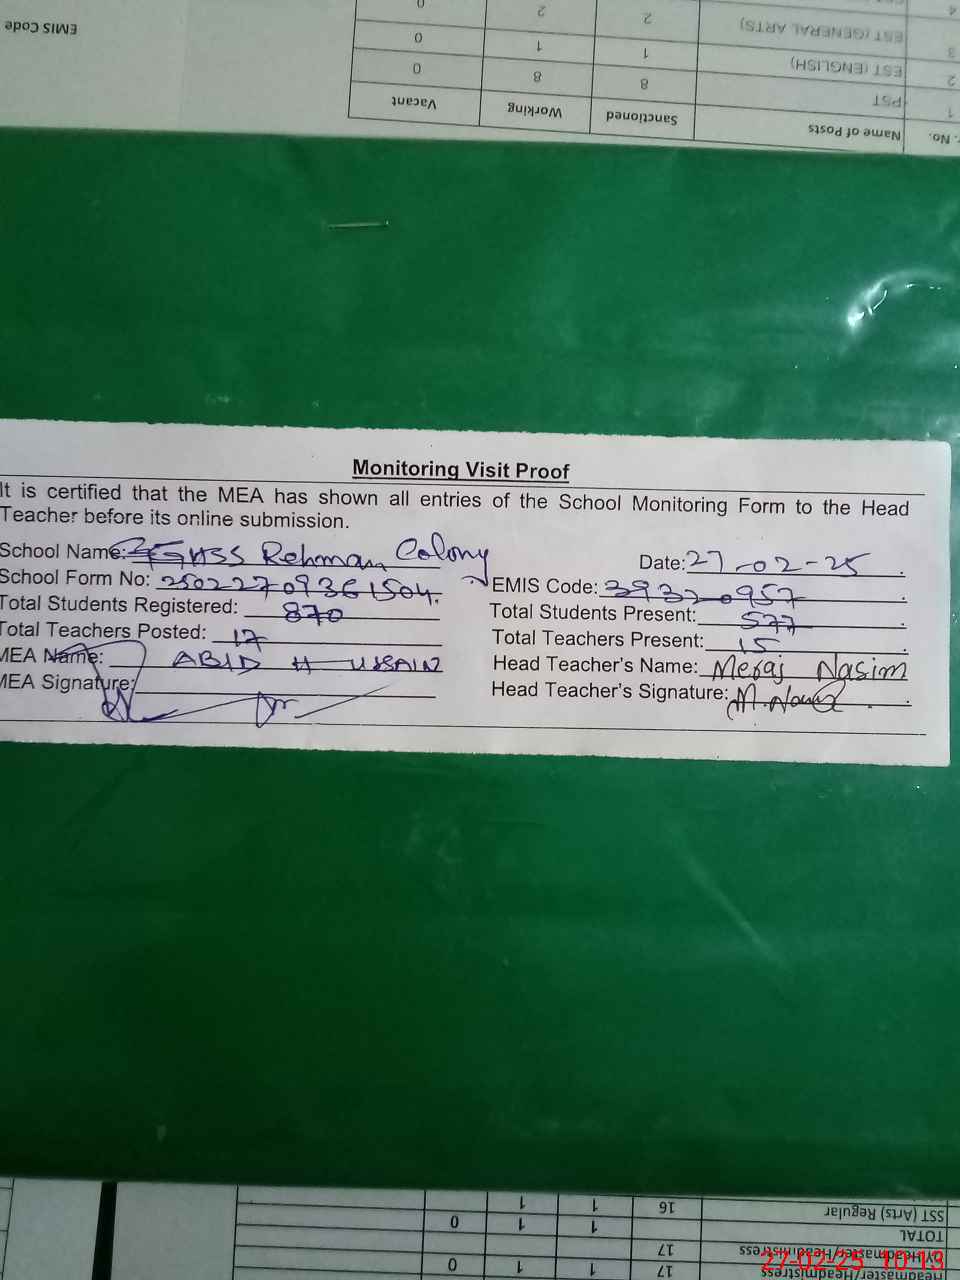 EMIS Code
4 0 2 2
3 EST (GENERAL ARTS) 2 2 0
2 EST (ENGLISH) 1 1 0
1 PST 8 8 0
. No. Name of Posts Sanctioned Working Vacant
Monitoring Visit Proof
It is certified that the MEA has shown all entries of the School Monitoring Form to the Head
Teacher before its online submission.
School Name: GHSS Rehman Colony Date: 27-02-25
School Form No: 25022709361504. EMIS Code: 393320957
Total Students Registered: 870 Total Students Present: 577
Total Teachers Posted: 17 Total Teachers Present: 15
MEA Name: ABID HUSSAIN Head Teacher's Name: Meraj Nasim
MEA Signature: Head Teacher's Signature:
SST (Arts) Regular 16 1 1
TOTAL 1 1 0
Headmaster/Headmistress 17
Headmaster/Headmistress 17 1 1 0
27-02-25 10:13